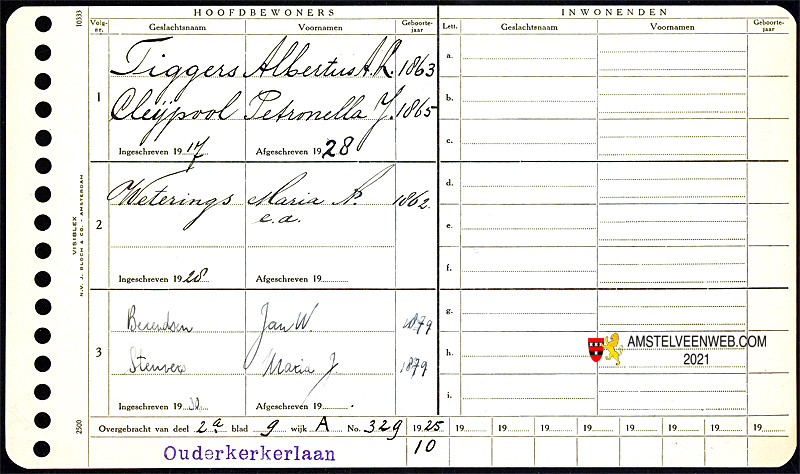 10333
HOOFDBEWONERS INWONENDEN
Volg-nr. Geslachtsnaam Voornamen Geboorte-jaar Lett. Geslachtsnaam Voornamen Geboorte-jaar
1 Tiggers Albertus A.R. 1863 a.
Cleÿpool Petronella J. 1865 b.
c.
Ingeschreven 1917 Afgeschreven 1928
2 Weterings Maria P. 1862. d.
e.a.
e.
f.
Ingeschreven 1928 Afgeschreven 19
3 Berendsen Jan W. 1879 g.
Stenvers Maria J. 1879 h.
i.
Ingeschreven 19 Afgeschreven 19
VISIBLEX
N.V. J. BLOCH & CO. - AMSTERDAM
2500
Overgebracht van deel 2a blad 9 wijk A No. 329 1925 19 19 19 19 19 19 19 19 19
Ouderkerkerlaan 10
AMSTELVEENWEB.COM
2021